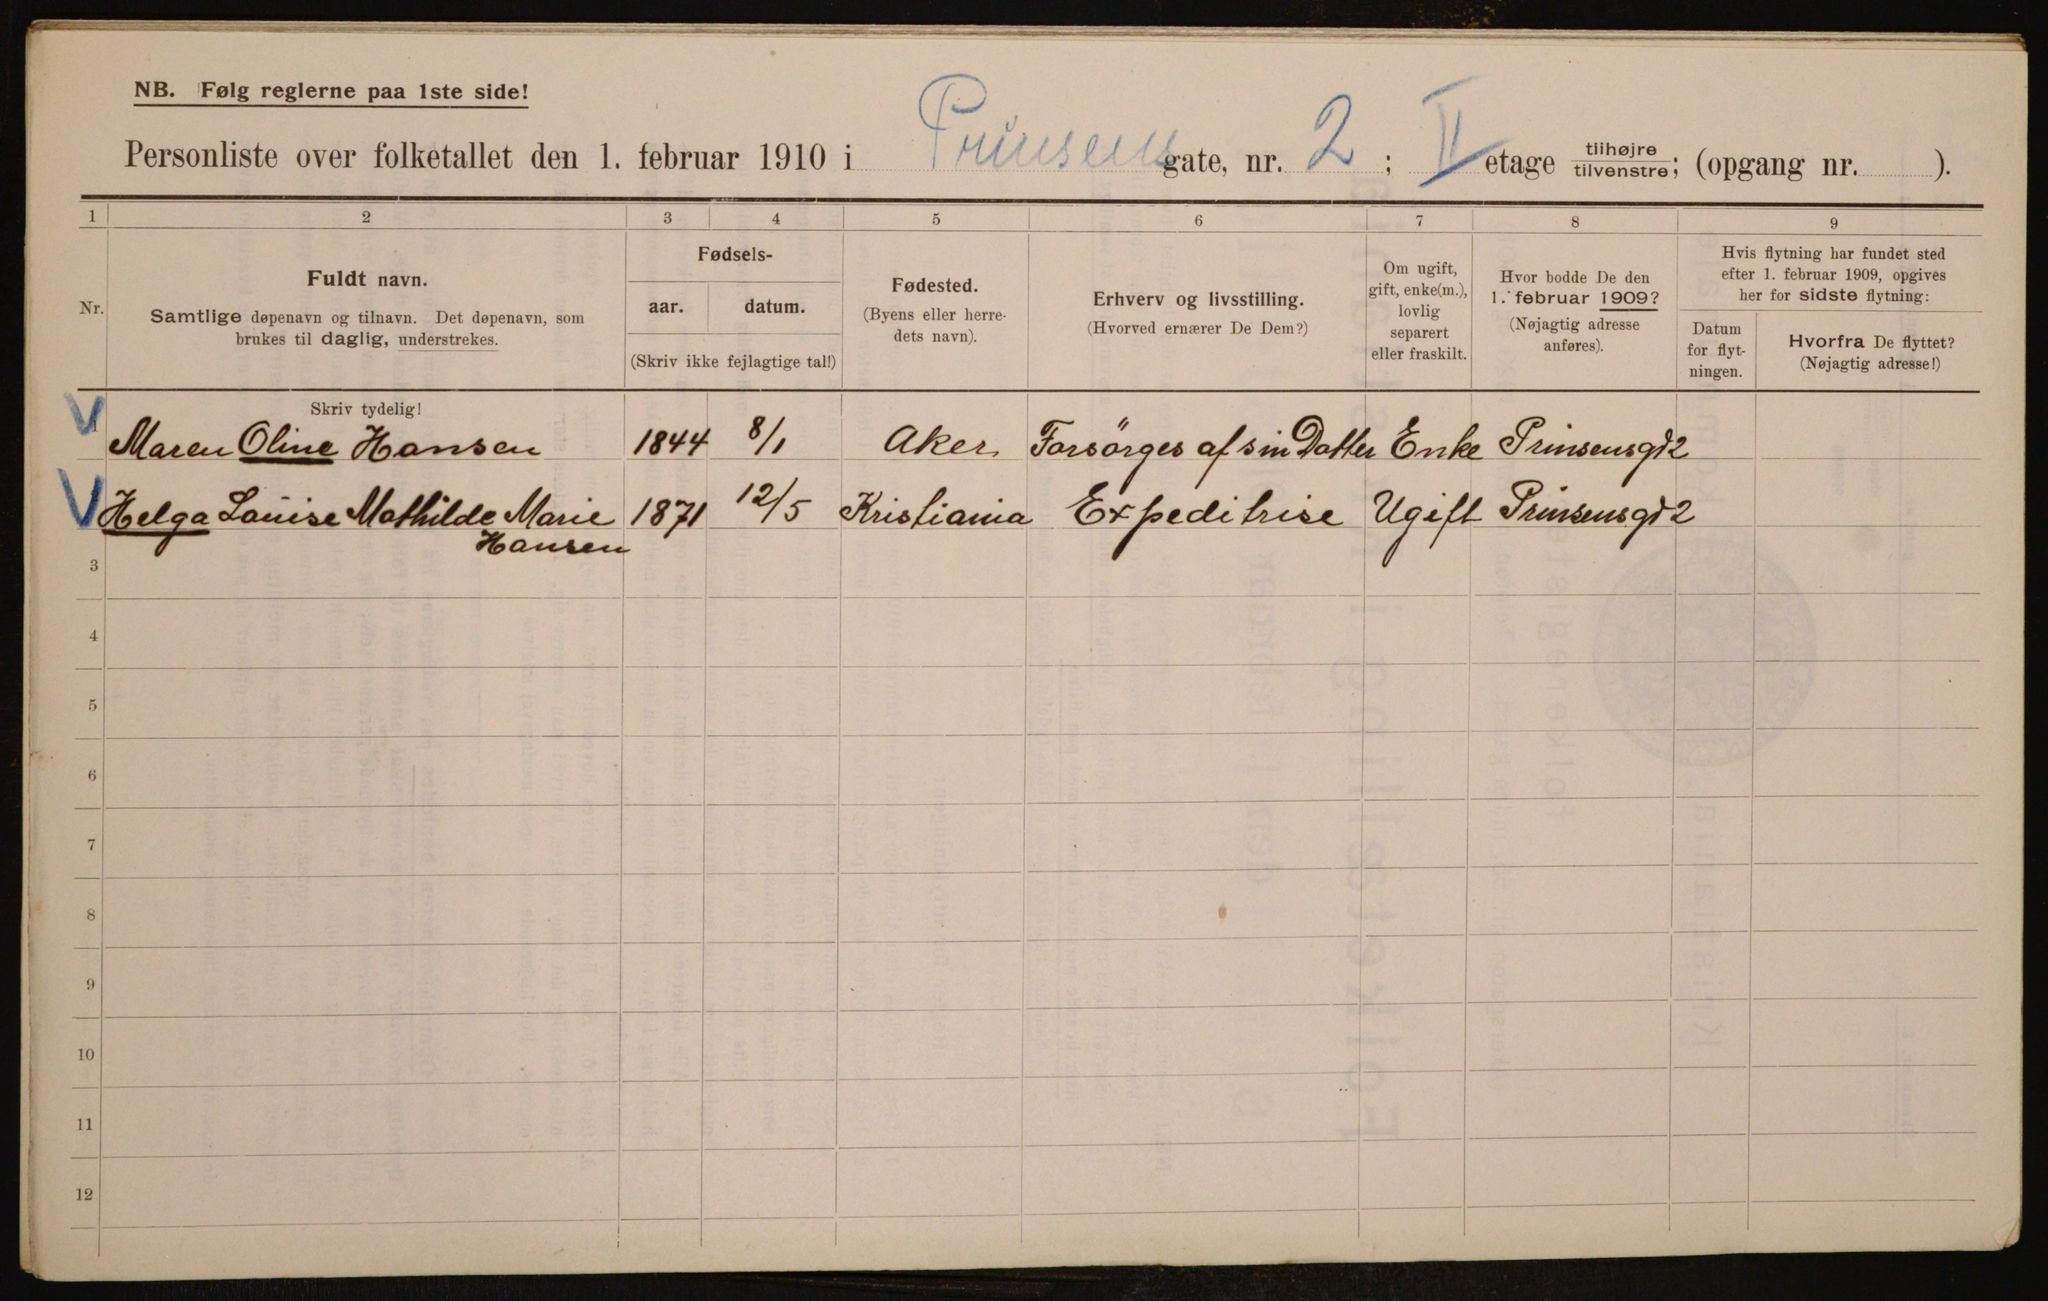 NB. Følg reglerne paa 1ste side!
Personliste over folketallet den 1. februar 1910 i Prinsens gate, nr. 2; II etage tilhøjre tilvenstre; (opgang nr. ).
1 2 3 4 5 6 7 8 9
Nr.
Fuldt navn.
Samtlige døpenavn og tilnavn. Det døpenavn, som
brukes til daglig, understrekes.
Fødsels-
aar. datum.
(Skriv ikke fejlagtige tal!)
Fødested.
(Byens eller herre-
dets navn).
Erhverv og livsstilling.
(Hvorved ernærer De Dem?)
Om ugift,
gift, enke(m.),
lovlig
separert
eller fraskilt.
Hvor bodde De den
1. februar 1909?
(Nøjagtig adresse
anføres).
Hvis flytning har fundet sted
efter 1. februar 1909, opgives
her for sidste flytning:
Datum
for flyt-
ningen.
Hvorfra De flyttet?
(Nøjagtig adresse!)
Skriv tydelig!
Maren Oline Hansen 1844 8/1 Aker Forsörges af sin Datter Enke Prinsensgd 2
Helga Louise Mathilde Marie 1871 12/5 Kristiania Expeditrise Ugift Prinsensgd 2
Hansen
3
4
5
6
7
8
9
10
11
12